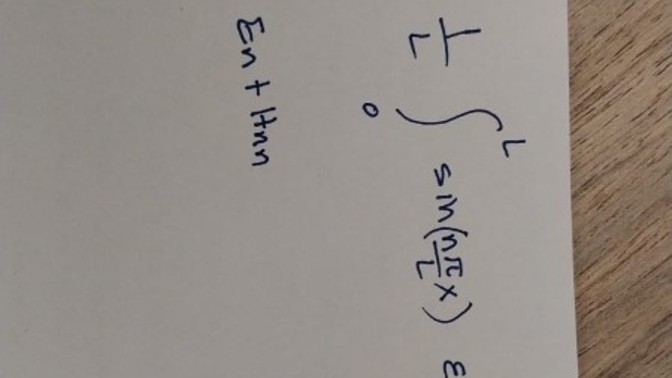 1/L ∫₀ᴸ sin(nπ/L x) ε
En + Hnn